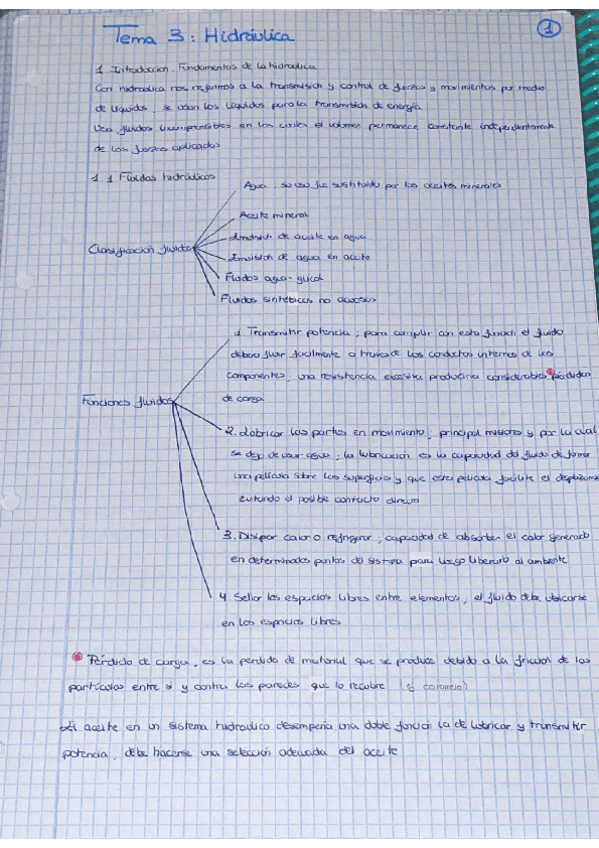 Tema 3: Hidráulica
1
1 Introducción. Fundamentos de la hidráulica
Con hidráulica nos referimos a la transmisión y control de fuerzas y movimientos por medio
de líquidos, se usan los líquidos para la transmisión de energía.
Usa fluidos incompresibles en los cuales el volumen permanece constante independientemente
de las fuerzas aplicadas
1.1 Fluidos hidráulicos
Agua, su uso fue sustituido por los aceites minerales
Aceite mineral
Clasificación fluidos
Emulsión de aceite en agua
Emulsión de agua en aceite
Fluidos agua-glicol
Fluidos sintéticos no acuosos
1. Transmitir potencia, para cumplir con esta función el fluido
deberá fluir fácilmente a través de los conductos internos de los
componentes, una resistencia excesiva produciría considerables pérdidas
Funciones fluidos
de carga
2. Lubricar las partes en movimiento, principal y por la cual
se dejó de usar agua, la lubricación es la capacidad del fluido de formar
una película sobre las superficies y que esta película facilite el
evitando el posible contacto directo
3. Disipar calor o refrigerar, capacidad de absorber el calor generado
en determinados puntos del sistema para luego liberarlo al ambiente
4 Sellar los espacios libres entre elementos, el fluido debe ubicarse
en los espacios libres
Pérdida de carga, es la pérdida de material que se produce debido a la fricción de las
partículas entre sí y contra las paredes que lo recubre
El aceite en un sistema hidráulico desempeña una doble función la de lubricar y transmitir
potencia, debe hacerse una selección adecuada del aceite